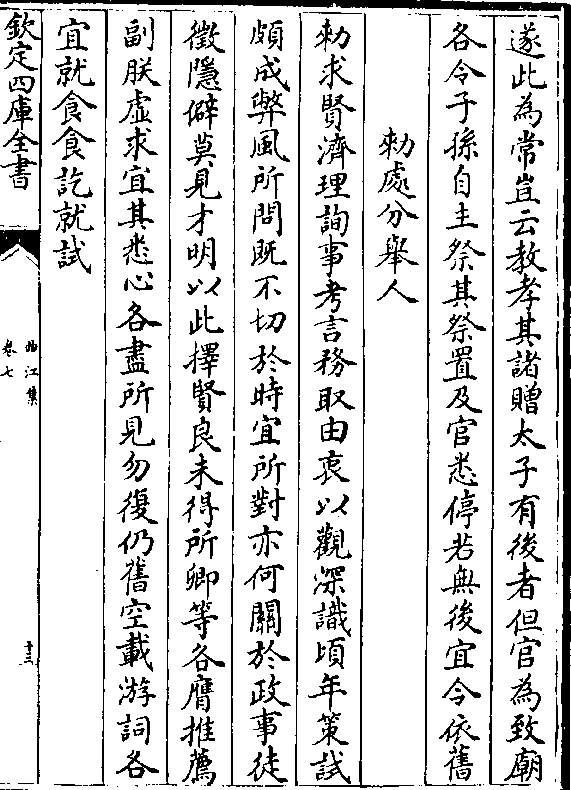 遂此為常豈云教孝其諸贈太子有後者但官為致廟
各令子孫自主祭其祭置及官悉停若無後宜令依舊
勅處分舉人
勅求賢濟理詢事考言務取由衷以觀深識頃年策試
頗成弊風所問既不切於時宜所對亦何關於政事徒
徵隱僻莫見才明以此擇賢良未得所卿等各膺推薦
副朕虛求宜其悉心各盡所見勿復仍舊空載游詞各
宜就食食訖就試
欽定四庫全書
曲江集
卷七
十三